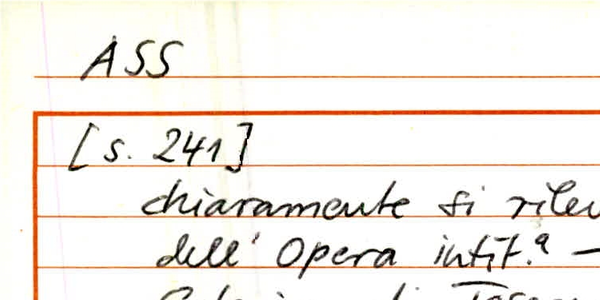 ASS
[s. 241]
chiaramente si
dell' Opera intit.ª —